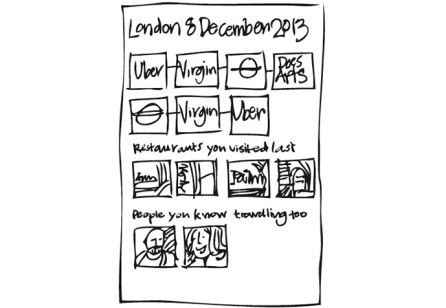 London 8 December 2013
Uber Virgin Dogs Arts
Virgin Uber
Restaurants you visited last
People you know travelling too